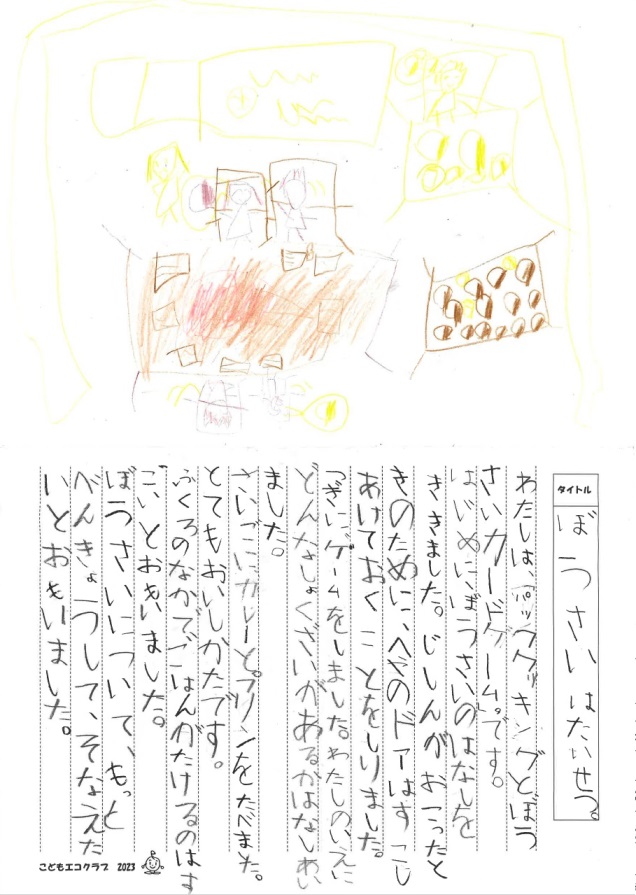 タイトル
ぼうさいはたいせつ。
わたしは、パックッキングとぼう
さいカードゲーム。です。
はじめに、ぼうさいのはなしを
ききました。じしんがおこったと
きのために、へやのドアはすこし
あけておくことをしりました。
つぎに、ゲームをしました。わたしのいえに
どんなしょくざいがあるかはなしあい
ました。
さいごにカレーと。プリンをたべました。
とてもおいしかたです。
ふくろのなかでごはんがたけるのはす
ごいとおもいました。
ぼうさいについて、もっと
べんきょうして、そなえた
いとおもいました。
こどもエコクラブ 2023